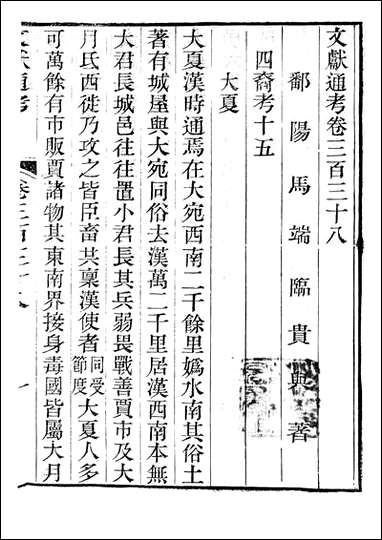 文獻通考卷三百三十八
鄱陽馬端臨貴與著
四裔考十五
大夏
大夏漢時通焉在大宛西南二千餘里嬀水南其俗土
著有城屋與大宛同俗去漢萬二千里居漢西南本無
大君長城邑往往置小君長其兵弱畏戰善賈市及大
月氏西徙乃攻之皆臣畜共稟漢使者同受節度大夏人多
可萬餘有市販賈諸物其東南界接身毒國皆屬大月
文獻通考 卷三百三十八